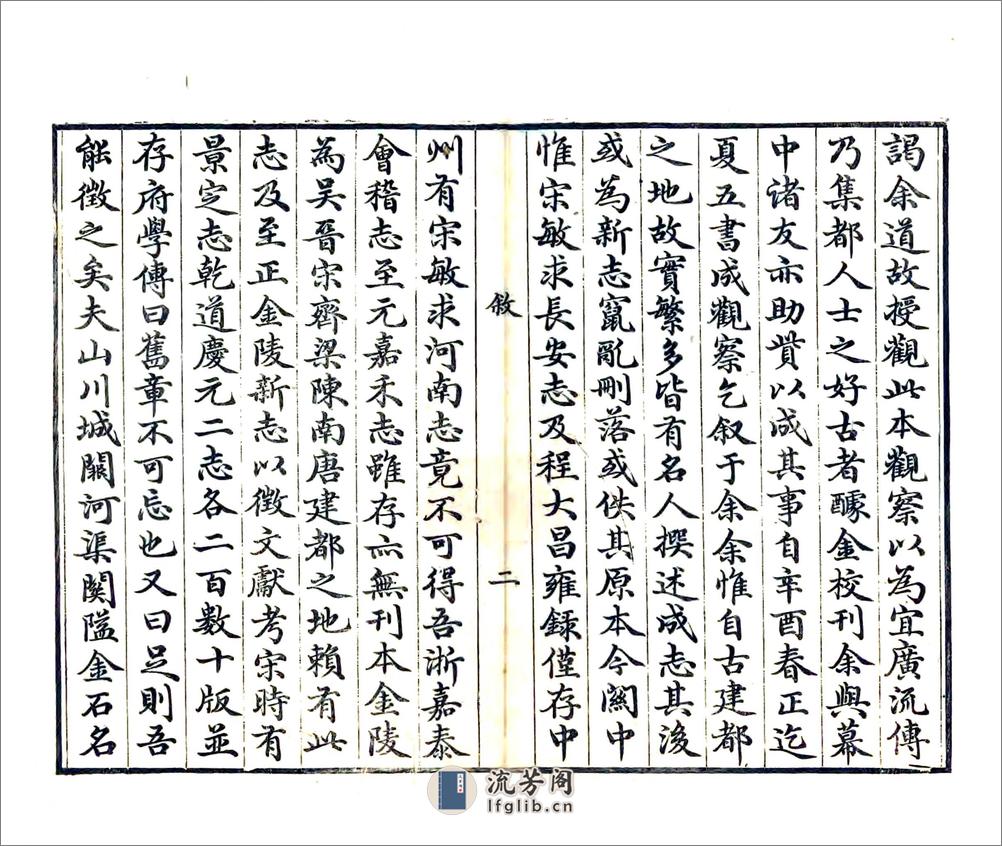 謁余道故授觀此本觀察以為宜廣流傳
乃集都人士之好古者醵金校刊余與幕
中诸友亦助貲以成其事自辛酉春正迄
夏五書成觀察乞叙于余余惟自古建都
之地故實繁多皆有名人撰述成志其後
或為新志竄亂刪落或佚其原本今關中
惟宋敏求長安志及程大昌雍錄僅存中
敘
二
州有宋敏求河南志竟不可得吾浙嘉泰
會稽志至元嘉禾志雖存亦無刊本金陵
為吴晉宋齊梁陳南唐建都之地賴有此
志及至正金陵新志以徵文獻考宋時有
景定志乾道慶元二志各二百數十版並
存府學傳曰舊章不可忘也又曰足則吾
能徵之矣夫山川城闕河渠關隘金石名
流芳阁
lfglib.cn